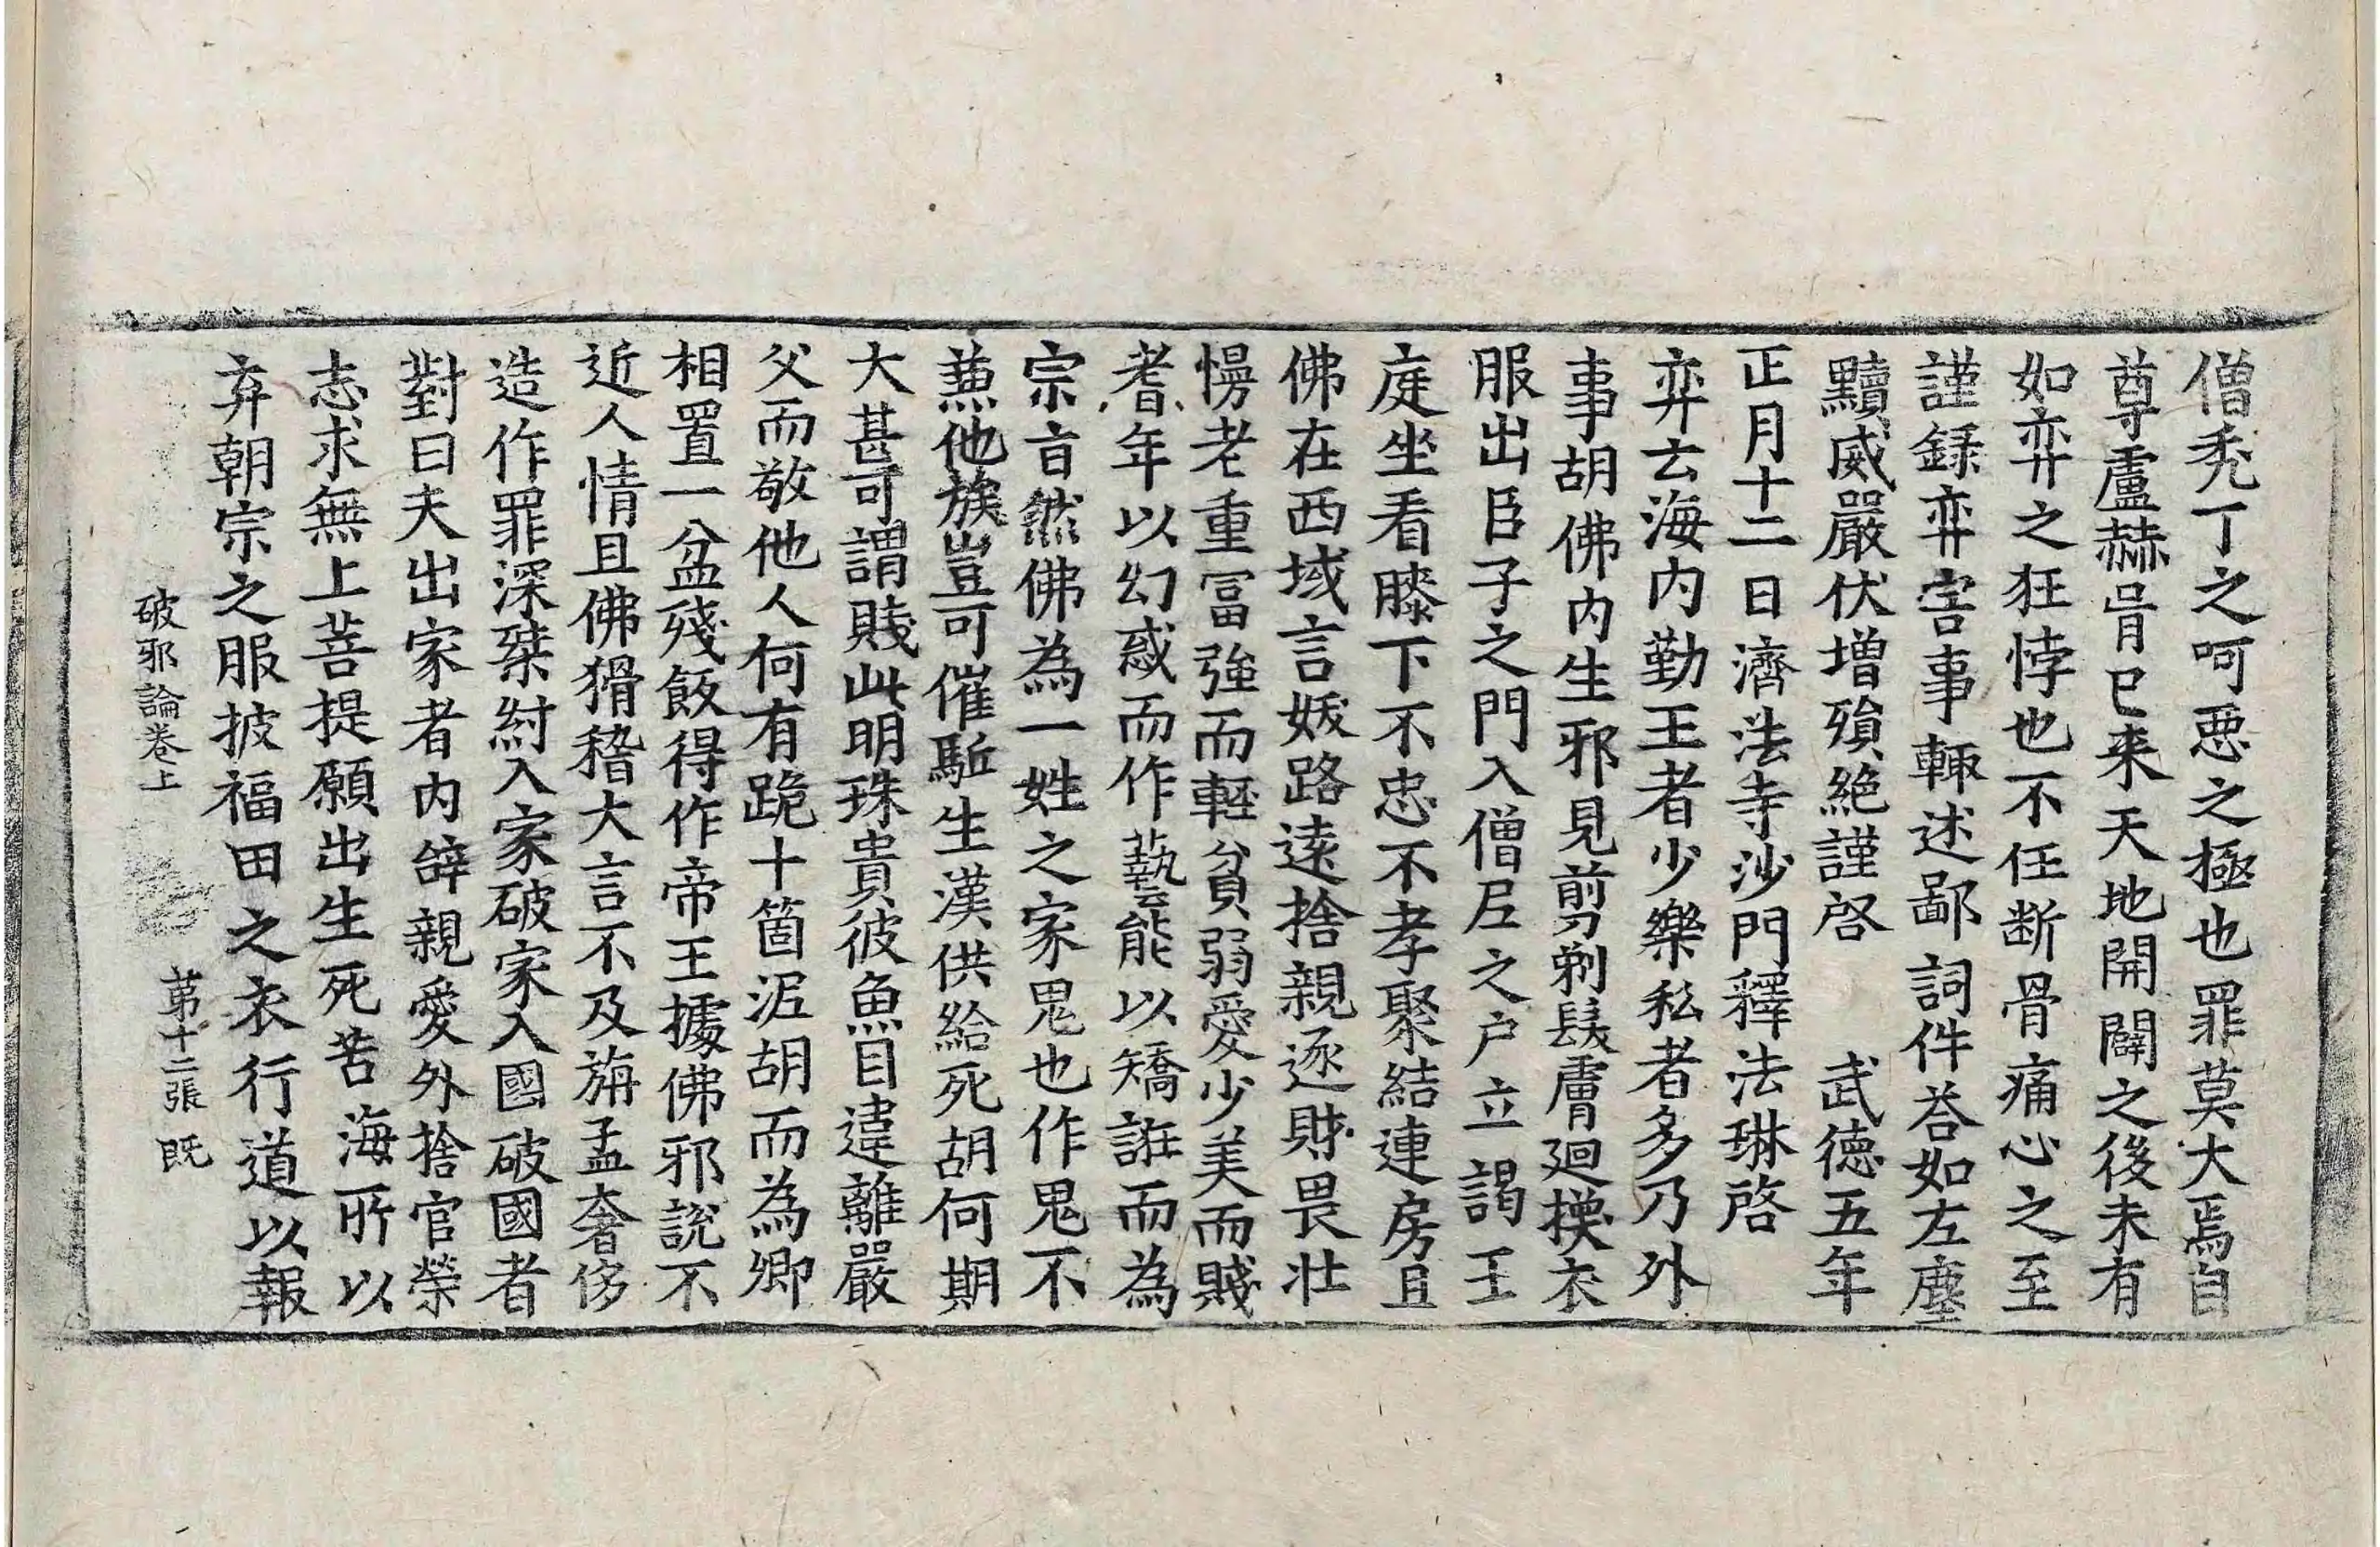 僧禿丁之呵惡之極也罪莫大焉自
尊盧赫胥已来天地開闢之後未有
如弈之狂悖也不任断骨痛心之至
謹録弈害事輙述鄙詞件荅如左塵
黷威嚴伏増殞絶謹啓　武德五年
正月十二日濟法寺沙門釋法琳啓
弈云海内勤王者少樂私者多乃外
事胡佛内生邪見剪剃髮膚廻換衣
服出臣子之門入僧尼之户立謁王
庭坐看膝下不忠不孝聚結連房且
佛在西域言妖路遠捨親逐財畏壮
慢老重冨強而輕貧弱愛少美而賤
耆年以幻惑而作藝能以矯誑而為
宗旨然佛為一姓之家鬼也作鬼不
兼他族豈可催驅生漢供給死胡何期
大甚可謂賤此明珠貴彼魚目違離嚴
父而敬他人何有跪十箇泥胡而為卿
相置一盆殘飯得作帝王據佛邪説不
近人情且佛猾稽大言不及旃孟奢侈
造作罪深桀紂入家破家入國破國者
對曰夫出家者内辞親愛外捨官榮
志求無上菩提願出生死苦海所以
弃朝宗之服披福田之衣行道以報
破邪論卷上　第十二張　既